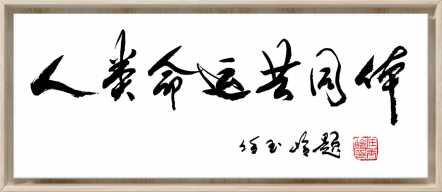 人类命运共同体
任玉岭题